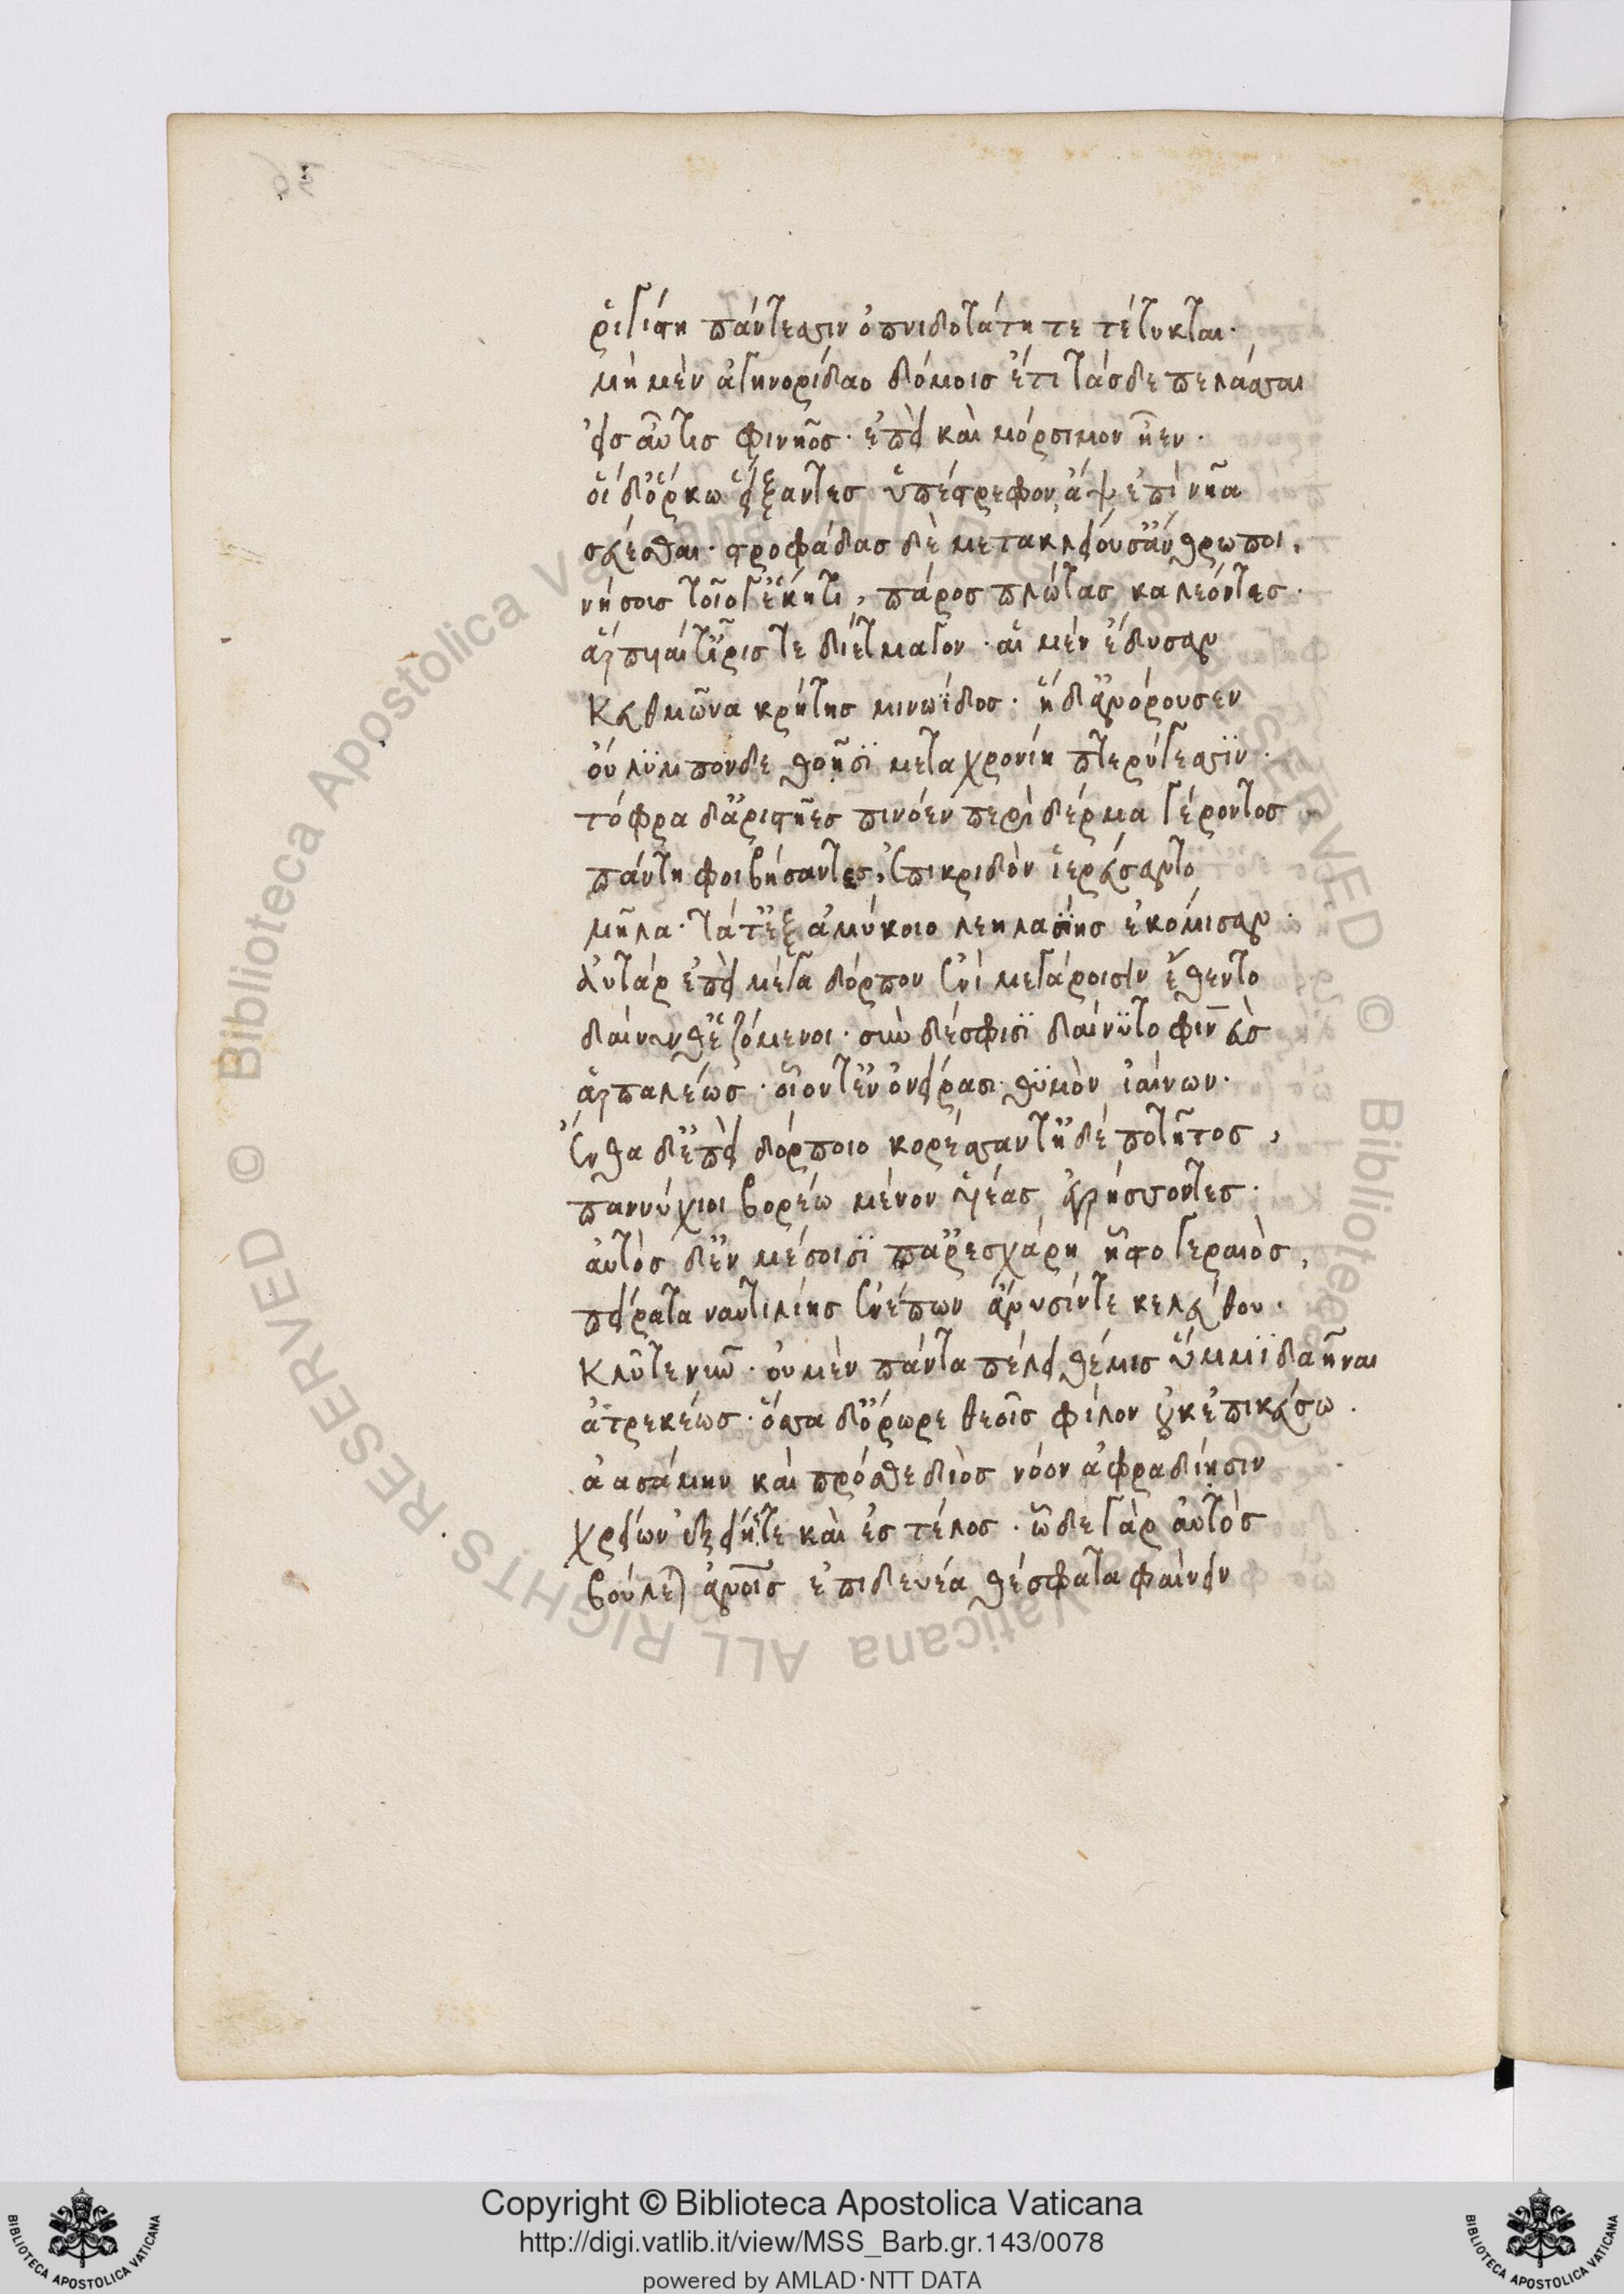 ῥιγίστη πάντεσσιν ὀπνιδοτάτη τε τέτυκται·
μὴ μὲν ἀγηνορίδαο δόμοις ἔτι τάσδε πελάσσαι
εἰς αὖτις φινῆος· ἐπεὶ καὶ μόρσιμον ἦεν·
οἱ δ' ὅρκω εἴξαντες ὑπέστρεφον ἄψ ἐπὶ νῆα
σεύεσθαι· στροφάδας δὲ μετακλείουσ' ἄνθρωποι,
νήσοις τοῖό γ' ἕκητι, πάρος πλωτὰς καλέοντες·
ἅρπυιαί τ' ἶρίς τε διέτμαγον· αἱ μὲν ἔδυσαν
Κευθμῶνα κρήτης μινωΐδος· ἡ δ' ἀνόρουσεν
οὐλϋμπόνδε θοῇσϊ μεταχρονίη πτερύγεσσϊν·
τόφρα δ' ἀριστῆες πινόεν περὶ δέρμα γέροντος
πάντη φοιβήσαντες, ἐπικριδὸν ἱερεύσαντο
μῆλα· τά τ' ἐξ ἀμύκοιο λεηλασίης ἐκόμισαν·
Αὐτὰρ ἐπεὶ μέγα δόρπον ἐνὶ μεγάροισιν ἔθεντο
δαίνυνθ' ἑζόμενοι· σὺν δέ σφισϊ δαίνϋτο φινεὺς
ἁρπαλέως· οἷόν τ' ἐν ὀνείρασι θϋμὸν ἰαίνων·
Ἔνθα δ' ἐπεὶ δόρποιο κορέσσαντ' ἠδὲ ποτῆτος,
παννύχιοι βορέω μένον υἱέας ἐγρήσσοντες·
αὐτὸς δ' ἐν μέσοισϊ παρ' ἐσχάρη ἧστο γεραιὸς,
πείρατα ναυτιλίης ἐνέπων ἄνυσίν τε κελεύθου·
Κλῦτε νυν· οὐ μὲν πάντα πέλει θέμις ὔμμϊ δαῆναι
ἀτρεκέως· ὅσσα δ' ὄρωρε θεοῖς φίλον οὐκ ἐπικεύσω·
ἀασάμην καὶ πρόσθε διὸς νόον ἀφραδίησιν
χρείων ἑξείης τε καὶ ἐς τέλος· ὧδε γὰρ αὐτὸς
βούλεται ἀνθρώποις ἐπιδευέα θέσφατα φαίνειν
Copyright © Biblioteca Apostolica Vaticana
http://digi.vatlib.it/view/MSS_Barb.gr.143/0078
powered by AMLAD·NTT DATA